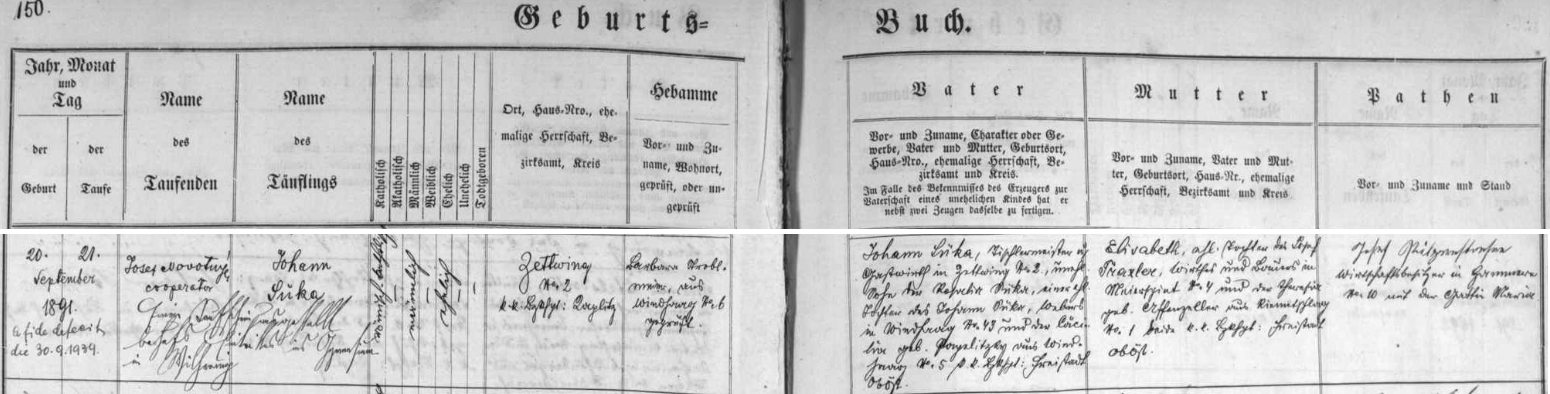 150.
Geburts=
Buch.
Jahr, Monat
und
Tag
der
Geburt
der
Taufe
Name
des
Taufenden
Name
des
Täuflings
Katholisch
Akatholisch
Männlich
Weiblich
Ehelich
Unehelich
Todtgeboren
Ort, Haus-Nro., ehe-
malige Herrschaft, Be-
zirksamt, Kreis
Hebamme
Vor- und Zu-
name, Wohnort,
geprüft, oder un-
geprüft
Vater
Vor- und Zuname, Charakter oder Ge-
werbe, Vater und Mutter, Geburtsort,
Haus-Nro., ehemalige Herrschaft, Be-
zirksamt und Kreis.
Im Falle des Bekenntnisses des Erzeugers zur
Vaterschaft eines unehelichen Kindes hat er
nebst zwei Zeugen dasselbe zu fertigen.
Mutter
Vor- und Zuname, Vater und Mut-
ter, Geburtsort, Haus-Nr., ehemalige
Herrschaft, Bezirksamt und Kreis
Pathen
Vor- und Zuname und Stand
20. 21.
September
1891.
a fide defecit
die 30.9.1939.
Josef Novotný
cooperator
behufs
in Wilhering
Johann
Süka
männlich
ehelich
Zettwing
Nr. 2
k.k. Bzkhpt: Kaplitz
Barbara
aus
Windhaag Nr. 6
geprüft.
Johann Süka, Tischlermeister u
Gastwirth in Zettwing Nr. 2, unehl.
Sohn der Süka, einer ehl.
Tochter des Johann Süka, Webers
in Windhaag Nr. 43 und der Cäci-
lia geb. aus Wind-
haag Nr. 5 k. k. Bzkhpt: Freistadt
Oböst.
Elisabeth, ehl. Tochter des Josef
Traxler, Wirthes und Bauers in
Nr. 4 und der Theresia
geb. Affenzeller aus
No. 1 beide k. k. Bzkhpt: Freistadt
Oböst.
Josef
Wirthschaftsbesitzer in
Nr. 10 mit der Gattin Maria